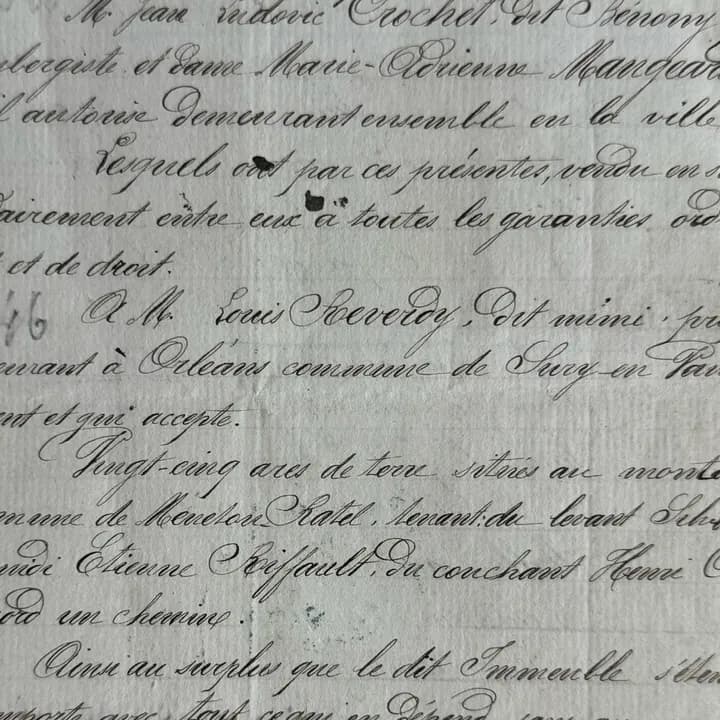 M. Jean Ludovic Crochet, dit Bénony
ubergiste et dame Marie-Adrienne Mangear
il autorise demeurant ensemble en la ville
Lesquels ont par ces présentes, vendu en s
dairement entre eux à toutes les garanties ord
t et de droit.
46
A M. Louis Reverdy, dit mimi, pr
eurant à Orléans commune de Sury en Vau
ent et qui accepte.
Vingt-cinq ares de terre situés au monte
mmune de Menetou Ratel, tenant: du levant Silv
midi Etienne Riffault, du couchant Henri C
ord un chemin.
Ainsi au surplus que le dit Immeuble s'éten
mporte avec tout ce qui en dépend sans